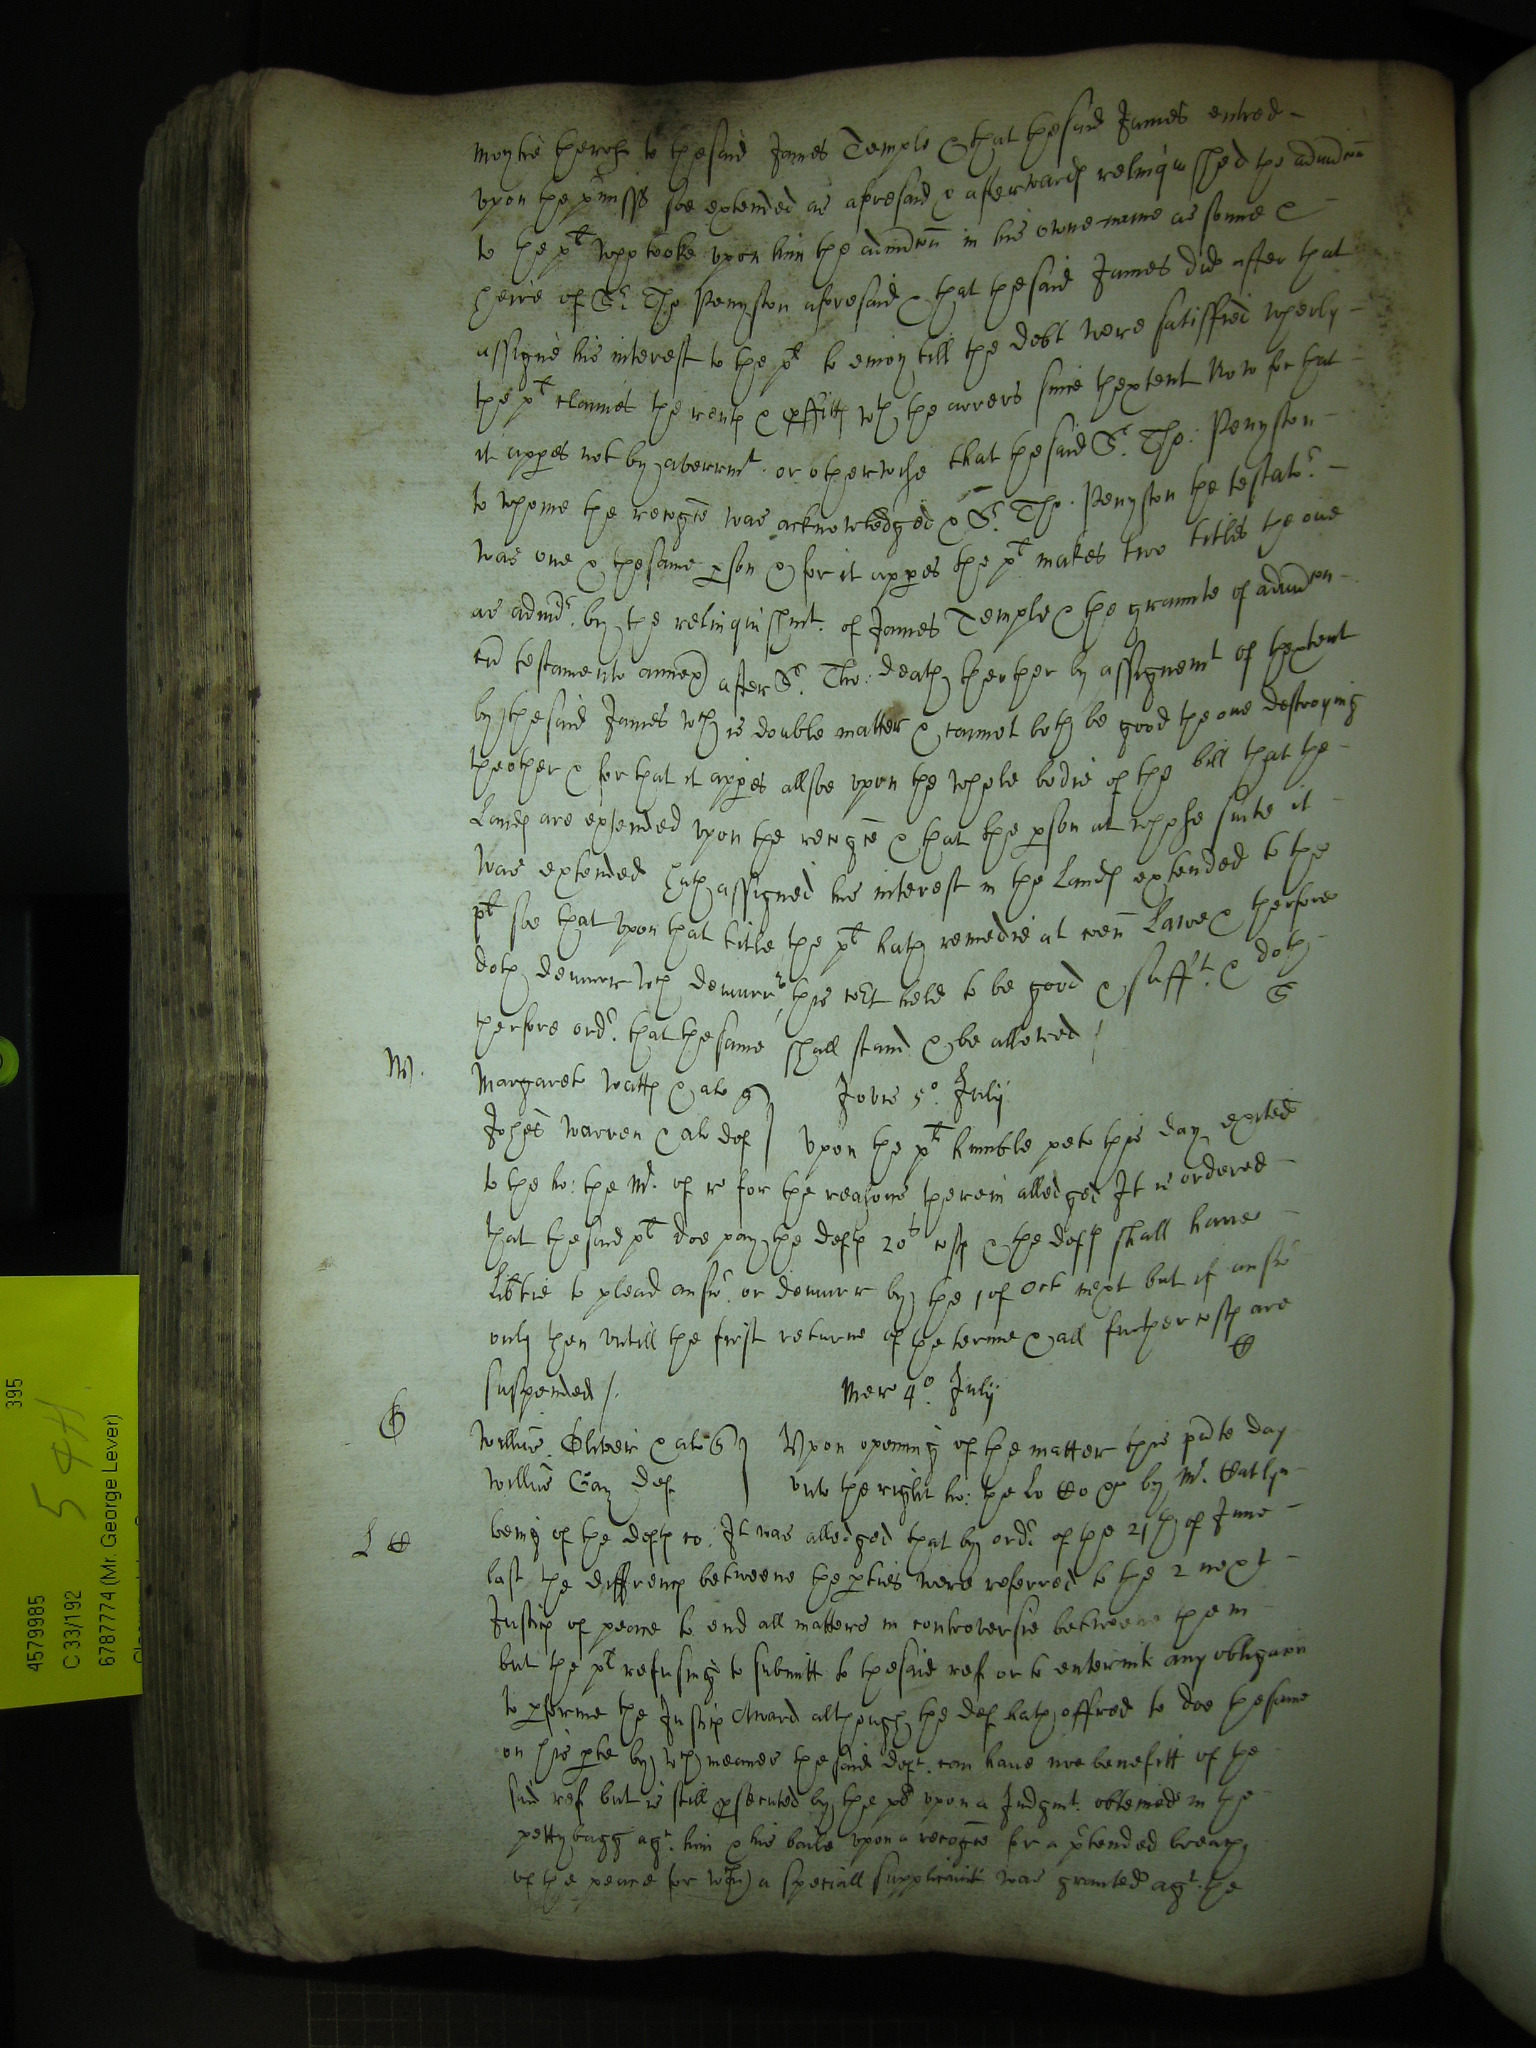 moytie therof to thesaid James Temple & that thesaid James entred
vpon the p'miss's soe extended as aforesaid & afterwards relinquished the admǣcon
to the plt who tooke vpon him the admcon in his owne name as sonne &
heire of Sr Tho Penyston aforesaid & that thesaid James did after that
assigne his interest to the plt to enioy till the debt were satisffied wherby
the plt claimes the rents & p'ffitts wth the arrers since thextent Now for that
it appes not by averrmt or otherwise that thesaid Sr. Tho: Penyston
to whome the recogce was acknowledged & Sr. Tho. Penyston the testator
was one & thesame p'son & for it appes the plt makes two titles the one
as admr. by the relinquishmt. of James Temple & the graunte of admcon
cu testamento annexo after Sr. Tho: death thother by assignemt of thextent
by thesaid James wch is double matter & cannot both be good the one destroying
theother & for that it appes allsoe vpon the whole bodie of the bill that the
Lands are extended vpon the recogce & that the p'son at whose suite it
was extended hath assigned his interest in the Lands extended to the
plt soe that vpon that title the plt hath remedie at coen Lawe & therfore
doth demurr wch demurrr this Cort held to be good & sufft. & doth
therfore ordr. that thesame shall stand & be allowed /
W.
Margareta Watts & al q
Jovis 5o. Julij
Johes Warren & al def
Vpon the plt humble peto this day exited
to the ho: the Mr. of ro for the reasons therein alledged It is ordered
that thesaid plt doe pay the defts 20s costs & the defts shall have
Lib'tie to plead answ. or demurr by the 1 of Oct next but if answ
only then vntill the first returne of the terme & all further costs are
suspended /.
Mer 4o. Julij
O
Willus. Oliver & al q
Vpon opening of the matter this p'nte day
Willus Gay def
vnto the right ho: the Lo Ko &c by Mr. Hatlyn
L K
being of the defts co: It was alledged that by ordr of the 21th of June
last the diffrencs betweene the p'ties were referred to the 2 next
Justics of peace to end all matters in controversie betweene them
but the plt refusing to submitt to thesaid ref or to enter into any obligacon
to p'forme the Justics Award although the def hath offred to doe thesame
on his p'te by wch meanes the said deft. can have noe benefitt of the
said ref but is still p'secuted by the plt vpon a Judgmt. obteined in the
pettybagg agt. him & his baile vpon a recogce for a p'tended breach
of the peace (for wch) a speciall supplicavit was graunted agt. the
395
54H
4579985
C 33/192
6787774 (Mr. George Lever)